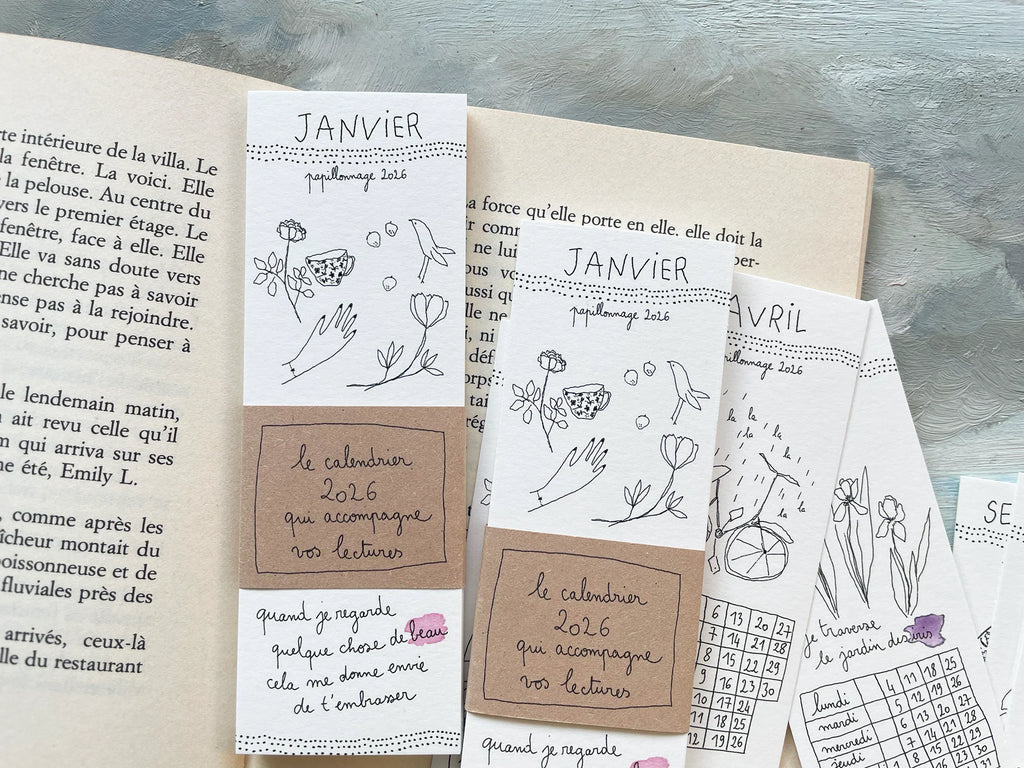 rte intérieure de la villa. Le
la fenêtre. La voici. Elle
la pelouse. Au centre du
vers le premier étage. Le
fenêtre, face à elle. Elle
Elle va sans doute vers
ne cherche pas à savoir
ense pas à la rejoindre.
savoir, pour penser à
le lendemain matin,
ait revu celle qu'il
qui arriva sur ses
ne été, Emily L.
comme après les
aîcheur montait du
poissonneuse et de
fluviales près des
arrivés, ceux-là
lle du restaurant
JANVIER
papillonnage 2026
le calendrier
2026
qui accompagne
vos lectures
quand je regarde
quelque chose de beau
cela me donne envie
de t'embrasser
La force qu'elle porte en elle, elle doit la
ne lui
JANVIER
papillonnage 2026
le calendrier
2026
qui accompagne
vos lectures
quand je regarde
AVRIL
papillonnage 2026
la la la
la la
la
la
la
6 13 20 27
7 14 21 28
8 15 22 29
9 16 23 30
10 17 24
11 18 25
12 19 26
je traverse
le jardin des iris
lundi 4 11 18 25
mardi 5 12 19 26
mercredi 6 13 20 27
jeudi 7 14 21 28
8 15 22 29
SE